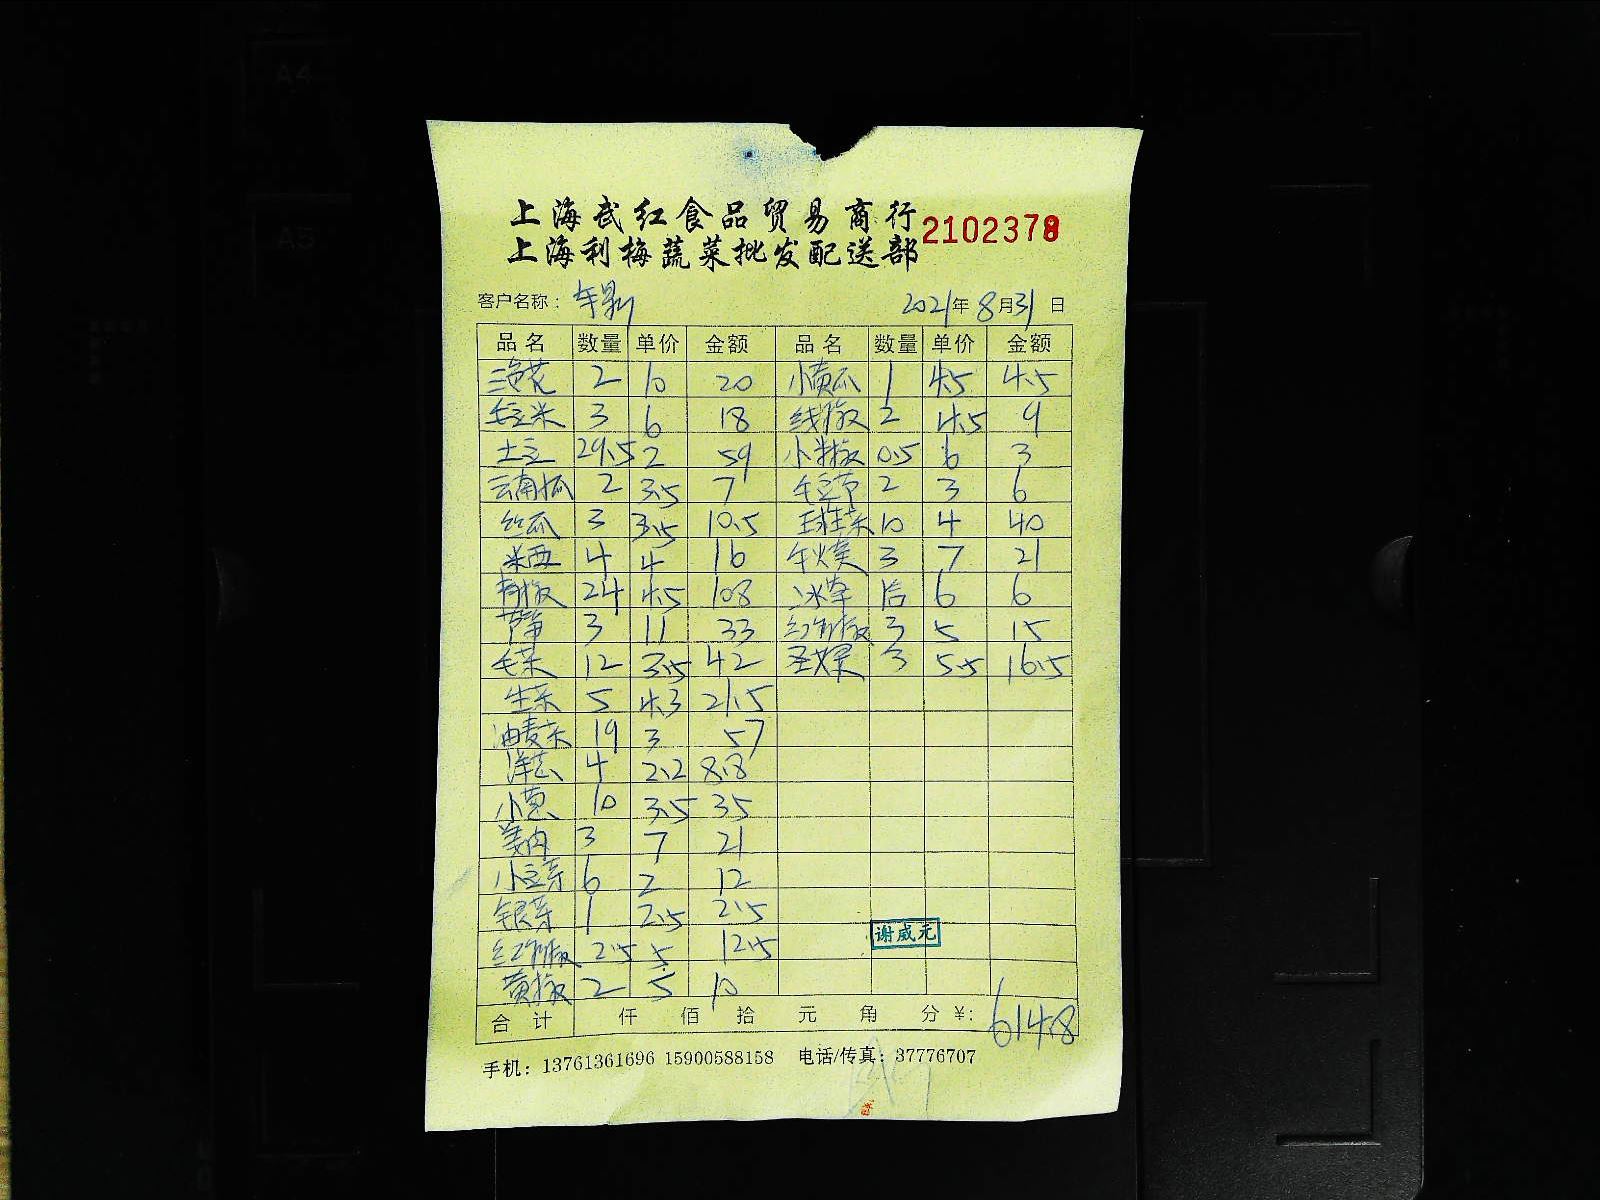 上海武红食品贸易商行
上海利梅蔬菜批发配送部
2102378
客户名称： 2021年8月31日
品名 数量 单价 金额 品名 数量 单价 金额
2 10 20 小黄瓜 1 4.5 4.5
毛豆米 3 6 18 线椒 2 4.5 9
土豆 29.5 2 59 小米椒 0.5 6 3
云南瓜 2 3.5 7 毛豆节 2 3 6
丝瓜 3 3.5 10.5 10 4 40
米西 4 4 16 3 7 21
青椒 24 4.5 108 冰草 1合 6 6
芦笋 3 11 33 红椒 3 5 15
毛菜 12 3.5 42 圣女果 3 5.5 16.5
生菜 5 4.3 21.5
油麦菜 19 3 57
洋芯 4 2.2 8.8
小葱 10 3.5 35
姜肉 3 7 21
小豆芽 6 2 12
银芽 1 2.5 2.5
红椒 2.5 5 12.5
黄椒 2 5 10
谢威元
合计 仟 佰 拾 元 角 分 ¥: 614.8
手机：13761361696 15900588158 电话/传真：37776707